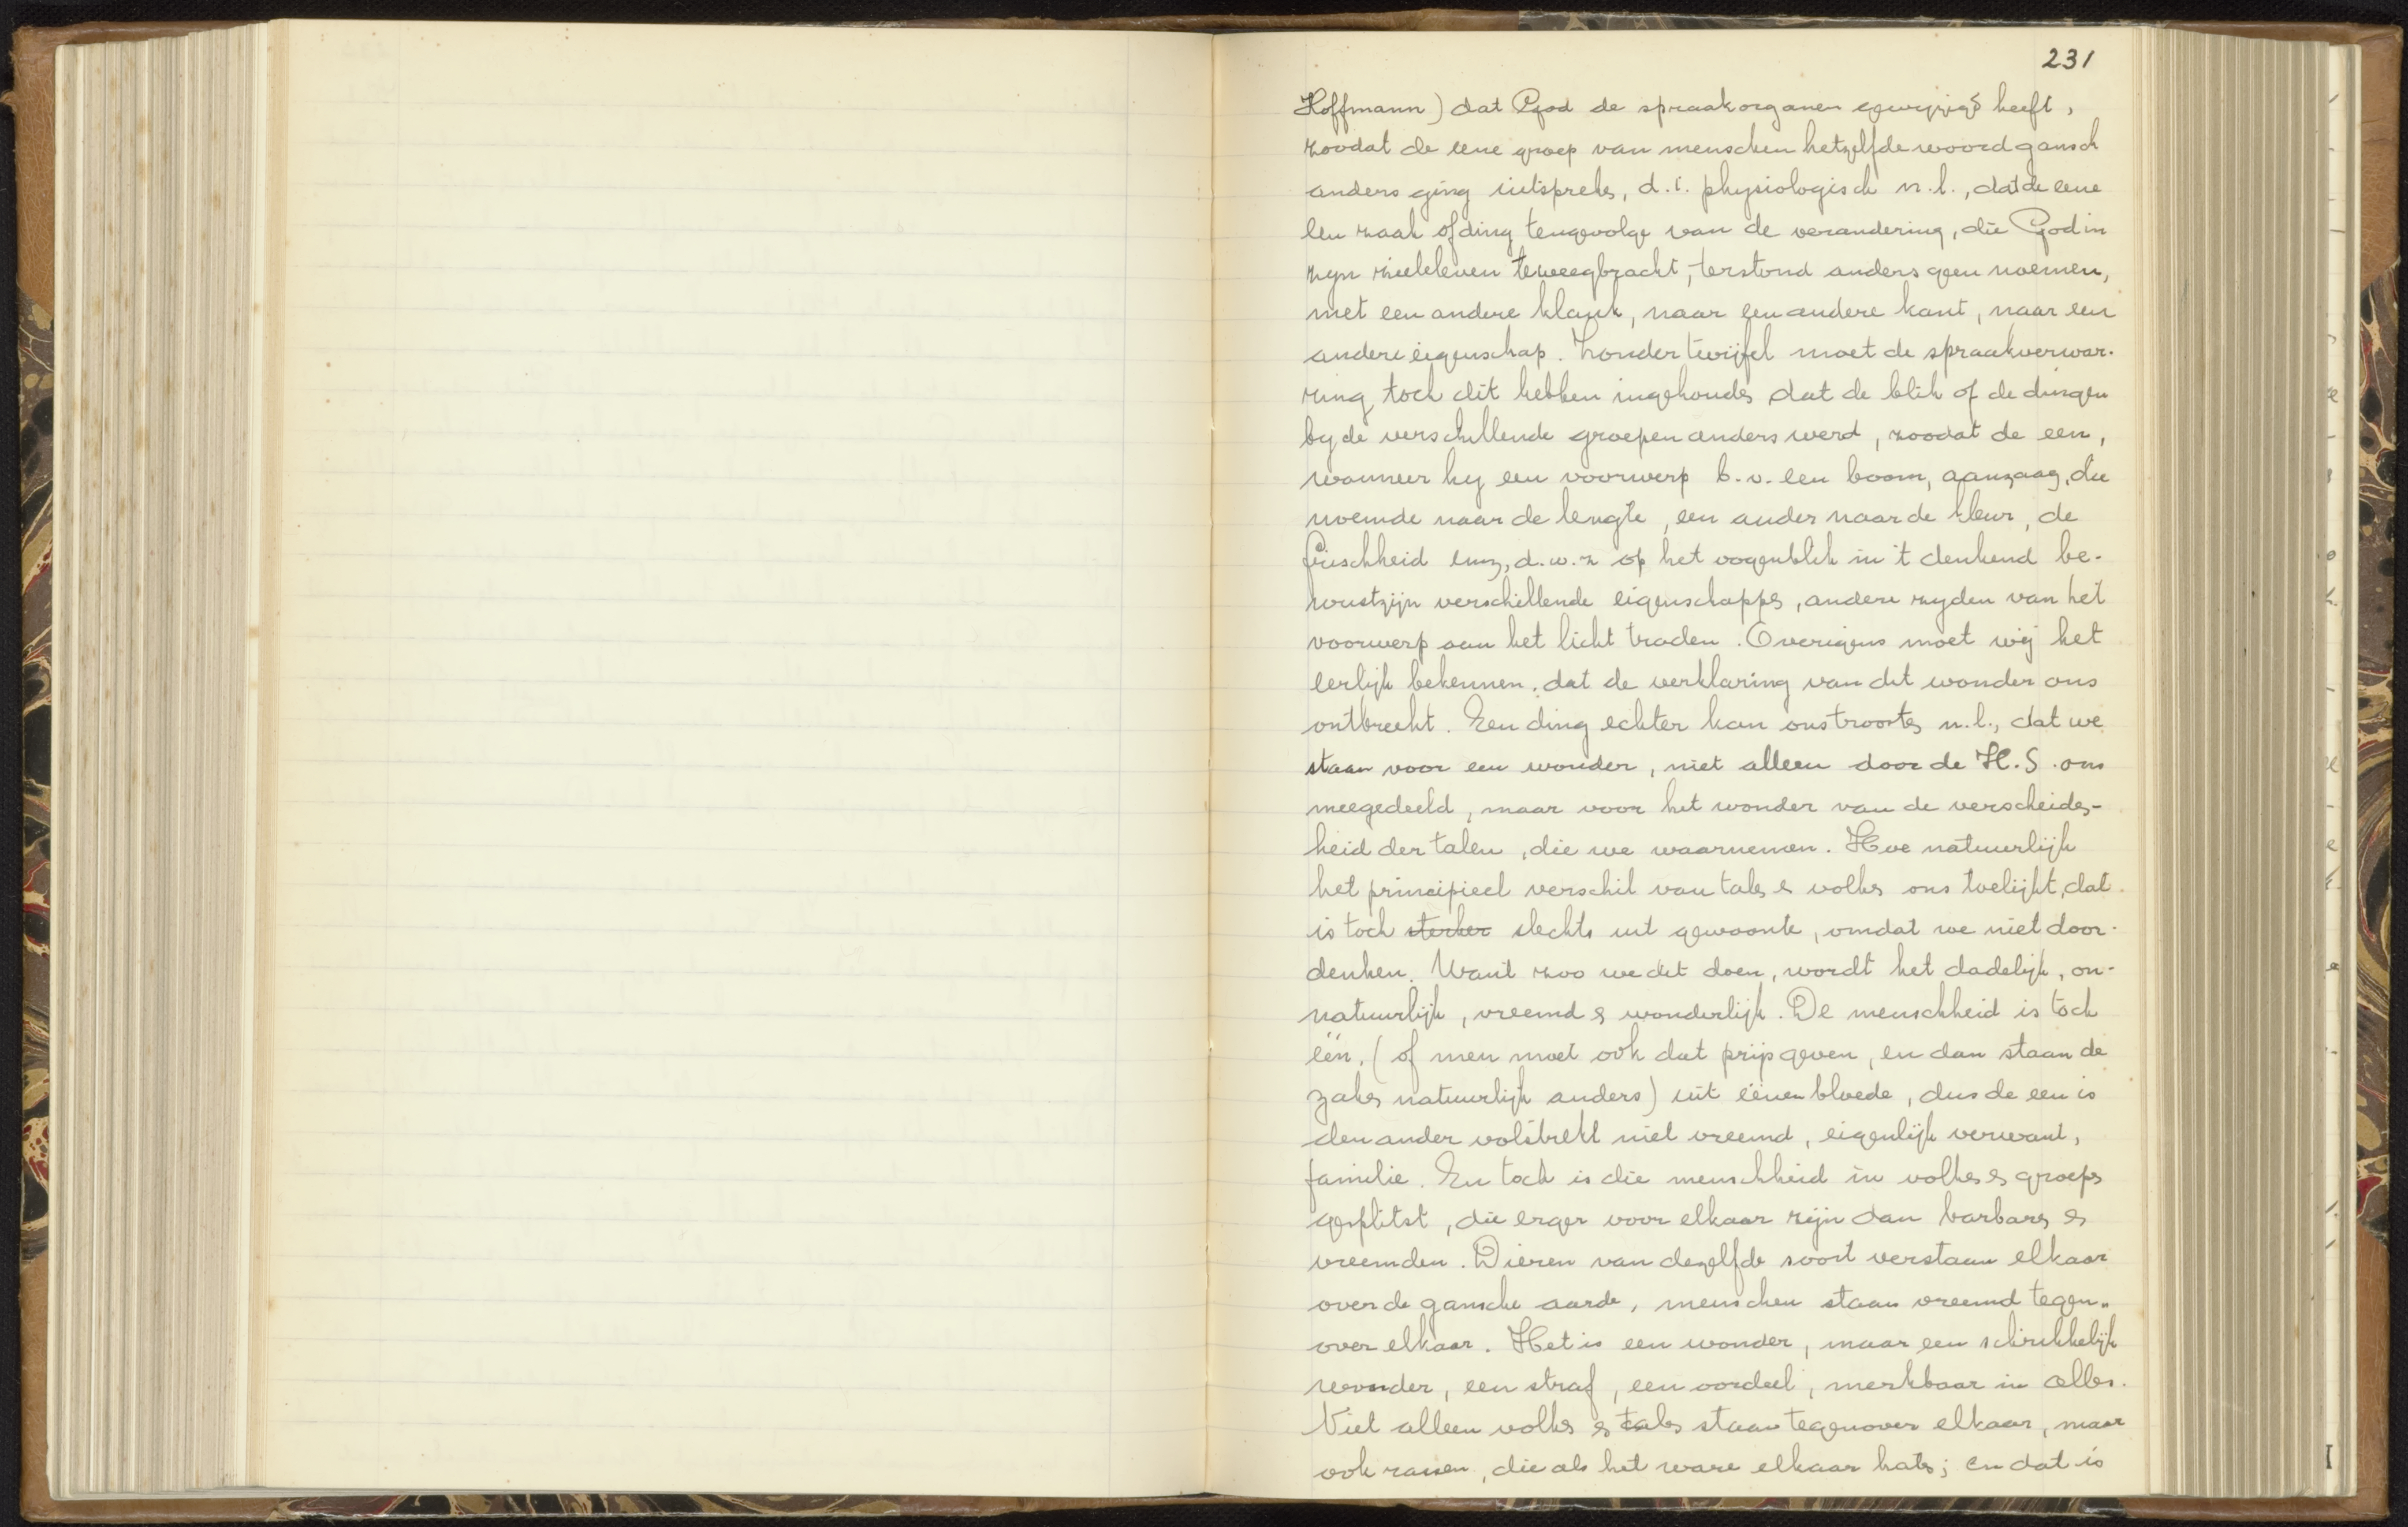 231
Hoffmann) dat God de spraakorganen gewijzigd heeft,
zoodat de eene groep van menschen hetzelfde woord gansch
anders ging uitspreken, d.i. physiologisch n.l., dat de eene
een zaak of ding tengevolge van de verandering, die God in
zyn zieleleven teweegbracht, terstond anders geen noemen,
met een andere klank, naar een andere kant, naar een
andere eigenschap. Zonder twijfel moet de spraakverwar-
ring toch dit hebben ingehouden dat de blik of de dingen
by de verschillende groepen anders werd, zoodat de een,
wanneer hy een voorwerp b.v. een boom, aanzag, die
noemde naar de lengte, een ander naar de kleur, de
frischheid enz, d.w.z op het oogenblik in 't denkend be-
wustzijn verschillende eigenschappen, andere zyden van het
voorwerp aan het licht traden. Overigens moet wij het
eerlijk bekennen, dat de verklaring van dit wonder ons
ontbreekt. Een ding echter kan ons troosten n.l., dat we
staan voor een wonder, niet alleen door de H.S. ons
meegedeeld, maar voor het wonder van de verscheiden-
heid der talen, die we waarnemen. Hoe natuurlijk
het principieel verschil van talen en volken ons toelijkt, dat
is toch sterker slechts uit gewoonte, omdat we niet door-
denken. Want zoo we dit doen, wordt het dadelijk, on-
natuurlijk, vreemd en wonderlijk. De menschheid is toch
één. (of men moet ook dat prijsgeven, en dan staan de
zaken natuurlijk anders) uit éénen bloede, dus de een is
den ander volstrekt niet vreemd, eigenlijk verwant,
familie. En toch is die menschheid in volken en groepen
gesplitst, die erger voor elkaar zijn dan barbaren en
vreemden. Dieren van dezelfde soort verstaan elkaar
over de gansche aarde, menschen staan vreemd tegen-
over elkaar. Het is een wonder, maar een schrikkelijk
wonder, een straf, een oordeel, merkbaar in alles.
Niet alleen volken en talen staan tegenover elkaar, maar
ook rassen, die als het ware elkaar haten; en dat is